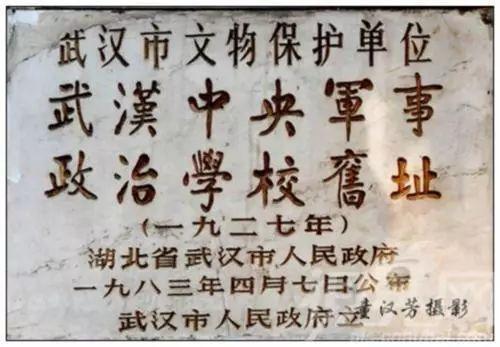 武汉市文物保护单位
武漢中央軍事
政治學校舊址
(一九二七年)
湖北省武汉市人民政府
一九八三年四月七日公布
武汉市人民政府立
童汉芳摄影